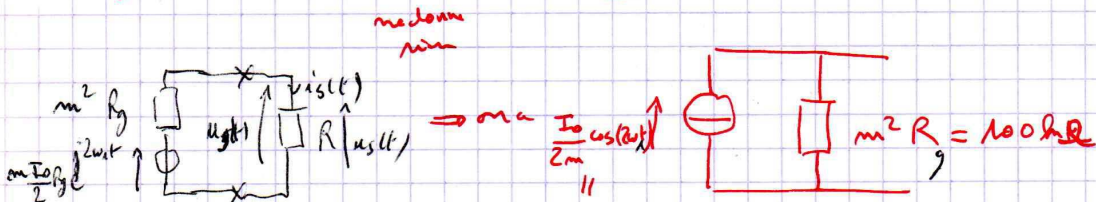 ne donne
rien
m² Rg
m I₀/2 Rg e^{j2ω₁t}
ug(t)
is(t)
R
us(t)
⇒ on a
I₀/2m cos(2ω₁t)
"
m² Rg = 100 kΩ